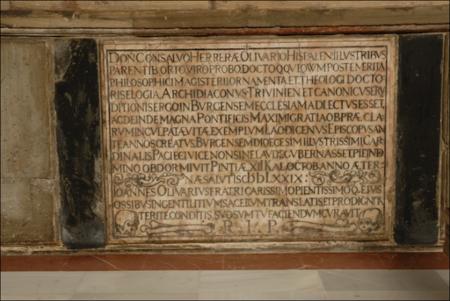 DON CONSALVO HERRERÆ OLIVARIO HISPALEN ILLVSTRIBVS
PARENTIB ORTO VIRO PROBO DOCTOQ QVI OVUM POST EMERITA
PHILOSOPHICI MAGISTERII ORNAMENTA ET THEOLOGI DOCTO
RIS ELOGIA, ARCHIDIACONVS TRIVINIEN ET CANONICVS ERV
DITIONIS ERGO IN BVRGENSEM ECCLESIAM ADLECTVS ESSET
AC DEINDE MAGNA PONTIFICIS MAXIMI GRATIA OB PRÆCLA
RVM INCVLPATÆ VITÆ EXEMPLVM LAODICENVS EPISCOPVS AN
TE ANNOS CREATVS BVRGENSEM DIOECESIM ILLVSTRISSIMI CAR
DINALIS PACIECI VICE NON SINE LAVDIS GVBERNASSET PIE IN DO
MINO OBDORMIVIT PINTIÆ XII KAL OCTOB ANNO ÆTER
NÆ SALVTIS
IOANNES OLIVARIVS FRATRI CARISSIMO PIENTISSIMOQ EIVS
OSSIBVS IN GENTILITIVM SACELLVM TRANSLATIS ET PRO DIGNIT
TE RITE CONDITIS SVO SVMTV FACIENDVM CVRAVIT
R I P